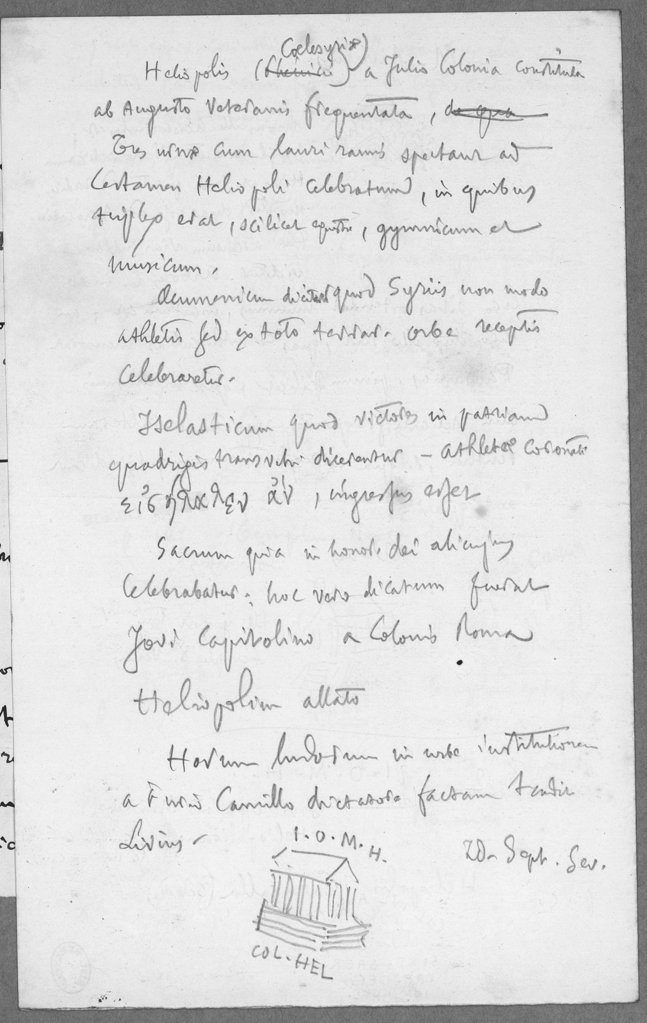 Coelesyriæ)
Heliopolis (Phenicis) a Julio Colonia constituta
ab Augusto Veteranis frequentata, de qua
Tres urnæ cum lauri ramis spectant ad
Certamen Heliopoli celebratum, in quibus
triplex erat, scilicet equestre, gymnicum et
musicum.
Oecumenicum dicitur quod Syriis non modo
athletis sed ex toto terrar. orbe receptis
celebraretur.
Iselasticum quod victores in patriam
quadrigis transvehi dicerentur – athletæ coronati
εἰσήλαλεν ἄν, ingressus esset
Sacrum quia in honore dei alicujus
celebrabatur; hoc vero dicatum fuerat
Jovi Capitolino a Colonis Roma
Heliopolim allato
Horum ludorum in urbe institutionem
a Furio Camillo dictatore factam tradit
Livius.
I.O.M.H.
Sept. Sev.
COL.HEL